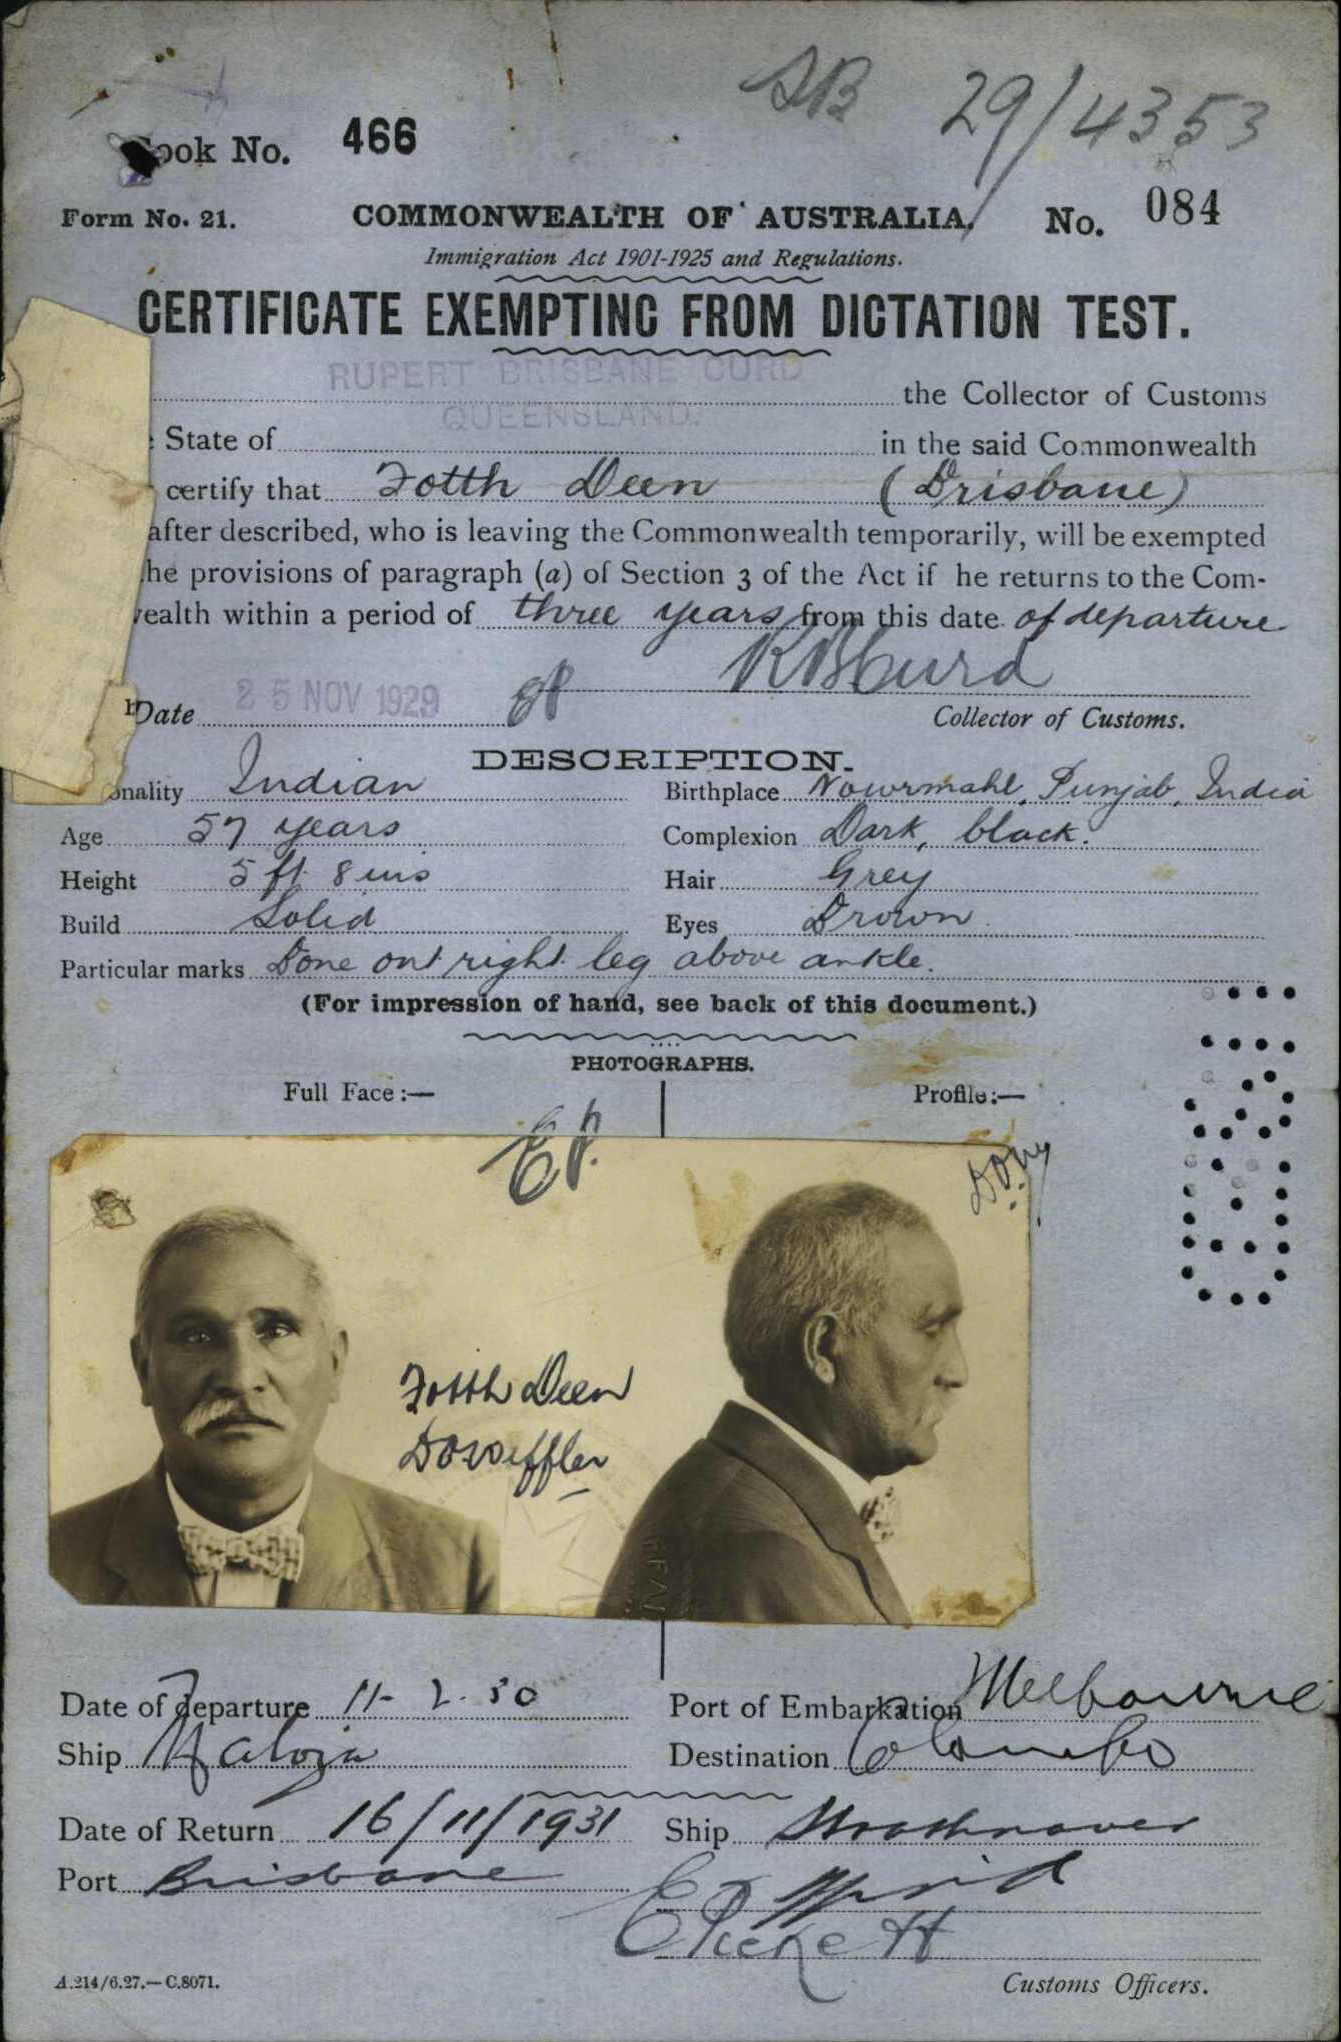 SB 29/4353
Book No. 466
Form No. 21. COMMONWEALTH OF AUSTRALIA. No. 084
Immigration Act 1901-1925 and Regulations.
CERTIFICATE EXEMPTING FROM DICTATION TEST.
RUPERT BRISBANE CURD the Collector of Customs
QUEENSLAND.
State of in the said Commonwealth
certify that Fotth Deen (Brisbane)
after described, who is leaving the Commonwealth temporarily, will be exempted
he provisions of paragraph (a) of Section 3 of the Act if he returns to the Com-
wealth within a period of three years from this date of departure
RBCurd
Date 25 NOV 1929 EP
Collector of Customs.
DESCRIPTION.
onality Indian Birthplace Nowrmahl, Punjab, India
Age 57 years Complexion Dark, black.
Height 5 ft 8 ins Hair Grey
Build Solid Eyes Brown
Particular marks Bone out right leg above ankle.
(For impression of hand, see back of this document.)
PHOTOGRAPHS.
Full Face:— Profile:—
EP.
Fotth Deen
Date of departure 11-2.30 Port of Embarkation Melbourne
Ship Maloja Destination Colombo
Date of Return 16/11/1931 Ship Strathnaver
Port Brisbane
E Pickett
A.214/6.27.—C.8071. Customs Officers.